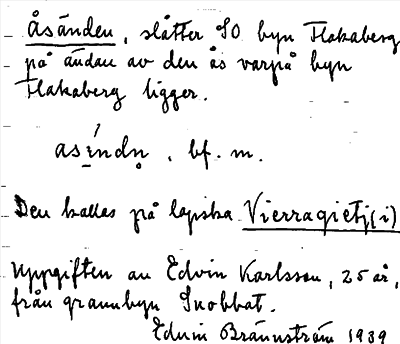 Åsänden, slåtter SO byn Flakaberg
på ändan av den ås varpå byn
Flakaberg ligger.
asi̱ńdṇ, bf. m.
Den kallas på lapska Vierragietj(i)
Uppgiften av Edvin Karlsson, 25 år,
från grannbyn Snobbat.
Edvin Brännström 1939